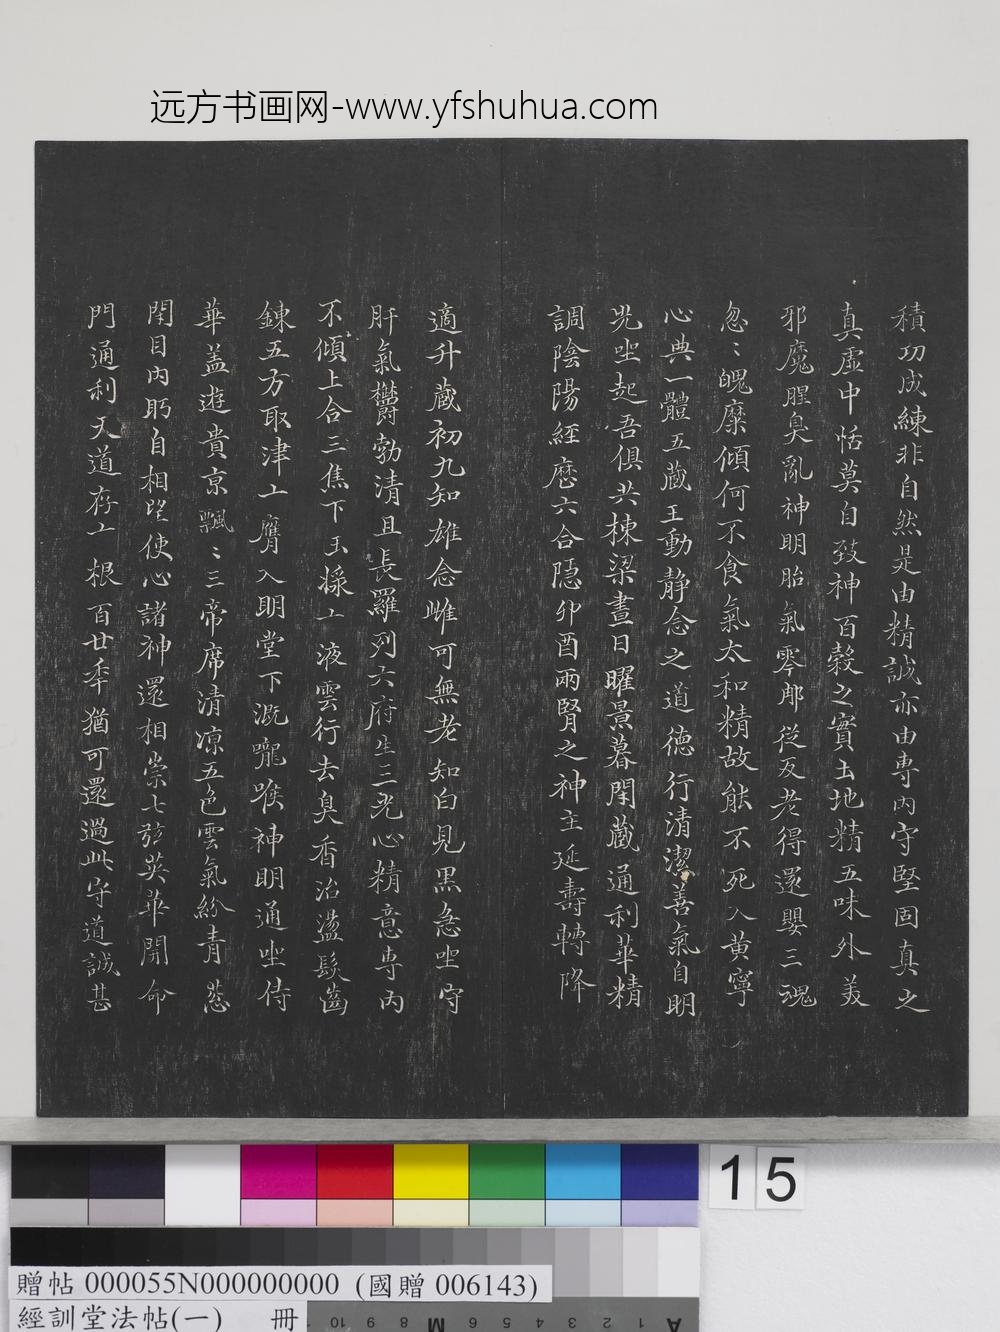 远方书画网-www.yfshuhua.com
積功成練非自然是由精誠亦由専内守堅固真之
真虚中恬莫自致神百穀之實土地精五味外美
邪魔腥臭亂神明胎氣零那従反老得還嬰三魂
忽〻魄糜傾何不食氣太和精故能不死入黄寧
心典一體五蔵王動静念之道徳行清潔善氣自明
光坐起吾俱共棟梁晝日曜景暮閉蔵通利華精
調陰陽經歴六合隠卯酉兩腎之神主延壽轉降
適升蔵初九知雄念雌可無老知白見黒急坐守
肝氣欝勃清且長羅列六府生三光心精意専内
不傾上合三焦下玉漿二液雲行去臭香治盪髮齒
錬五方取津二膺入明堂下溉嚨喉神明通坐侍
華盖遊貴京飄〻三帝席清凉五色雲氣紛青葱
閉目内眄自相望使心諸神還相崇七玄英華開命
門通利天道存二根百廿年猶可還過此守道誠甚
15
贈帖 000055N000000000 (國贈 006143)
經訓堂法帖(一) 冊
10 9 8 M 6 5 4 3 2 1 A